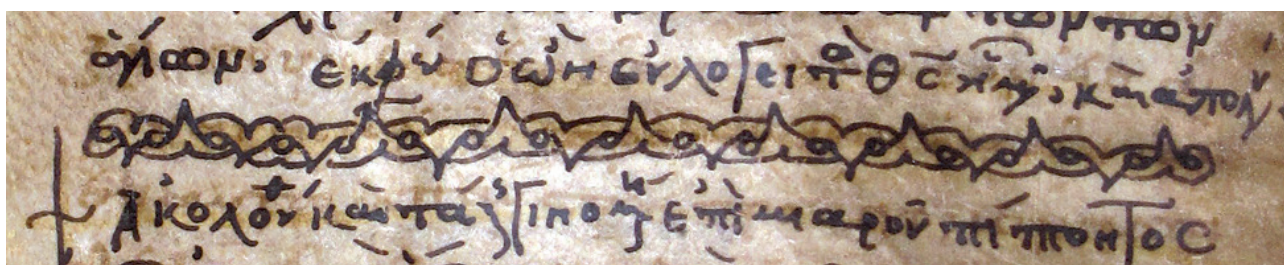 ἁγίων. ἐκφών Ὁ ὢν εὐλογειτ ΘC ἡμ, καὶ ἀπολυ
Ἀκολουθ καὶ τάξις γινομ ἐπὶ μιαροῦ πίπτοντος